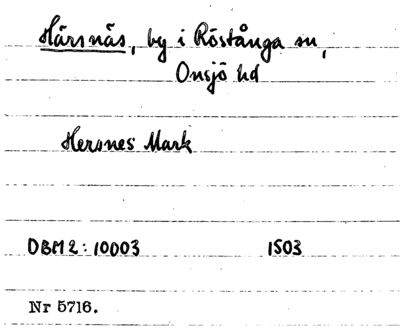 Härsnäs, by i Röstånga sn,
Onsjö hd
Hersnes Mark
DBM2: 10003 1503
Nr 5716.